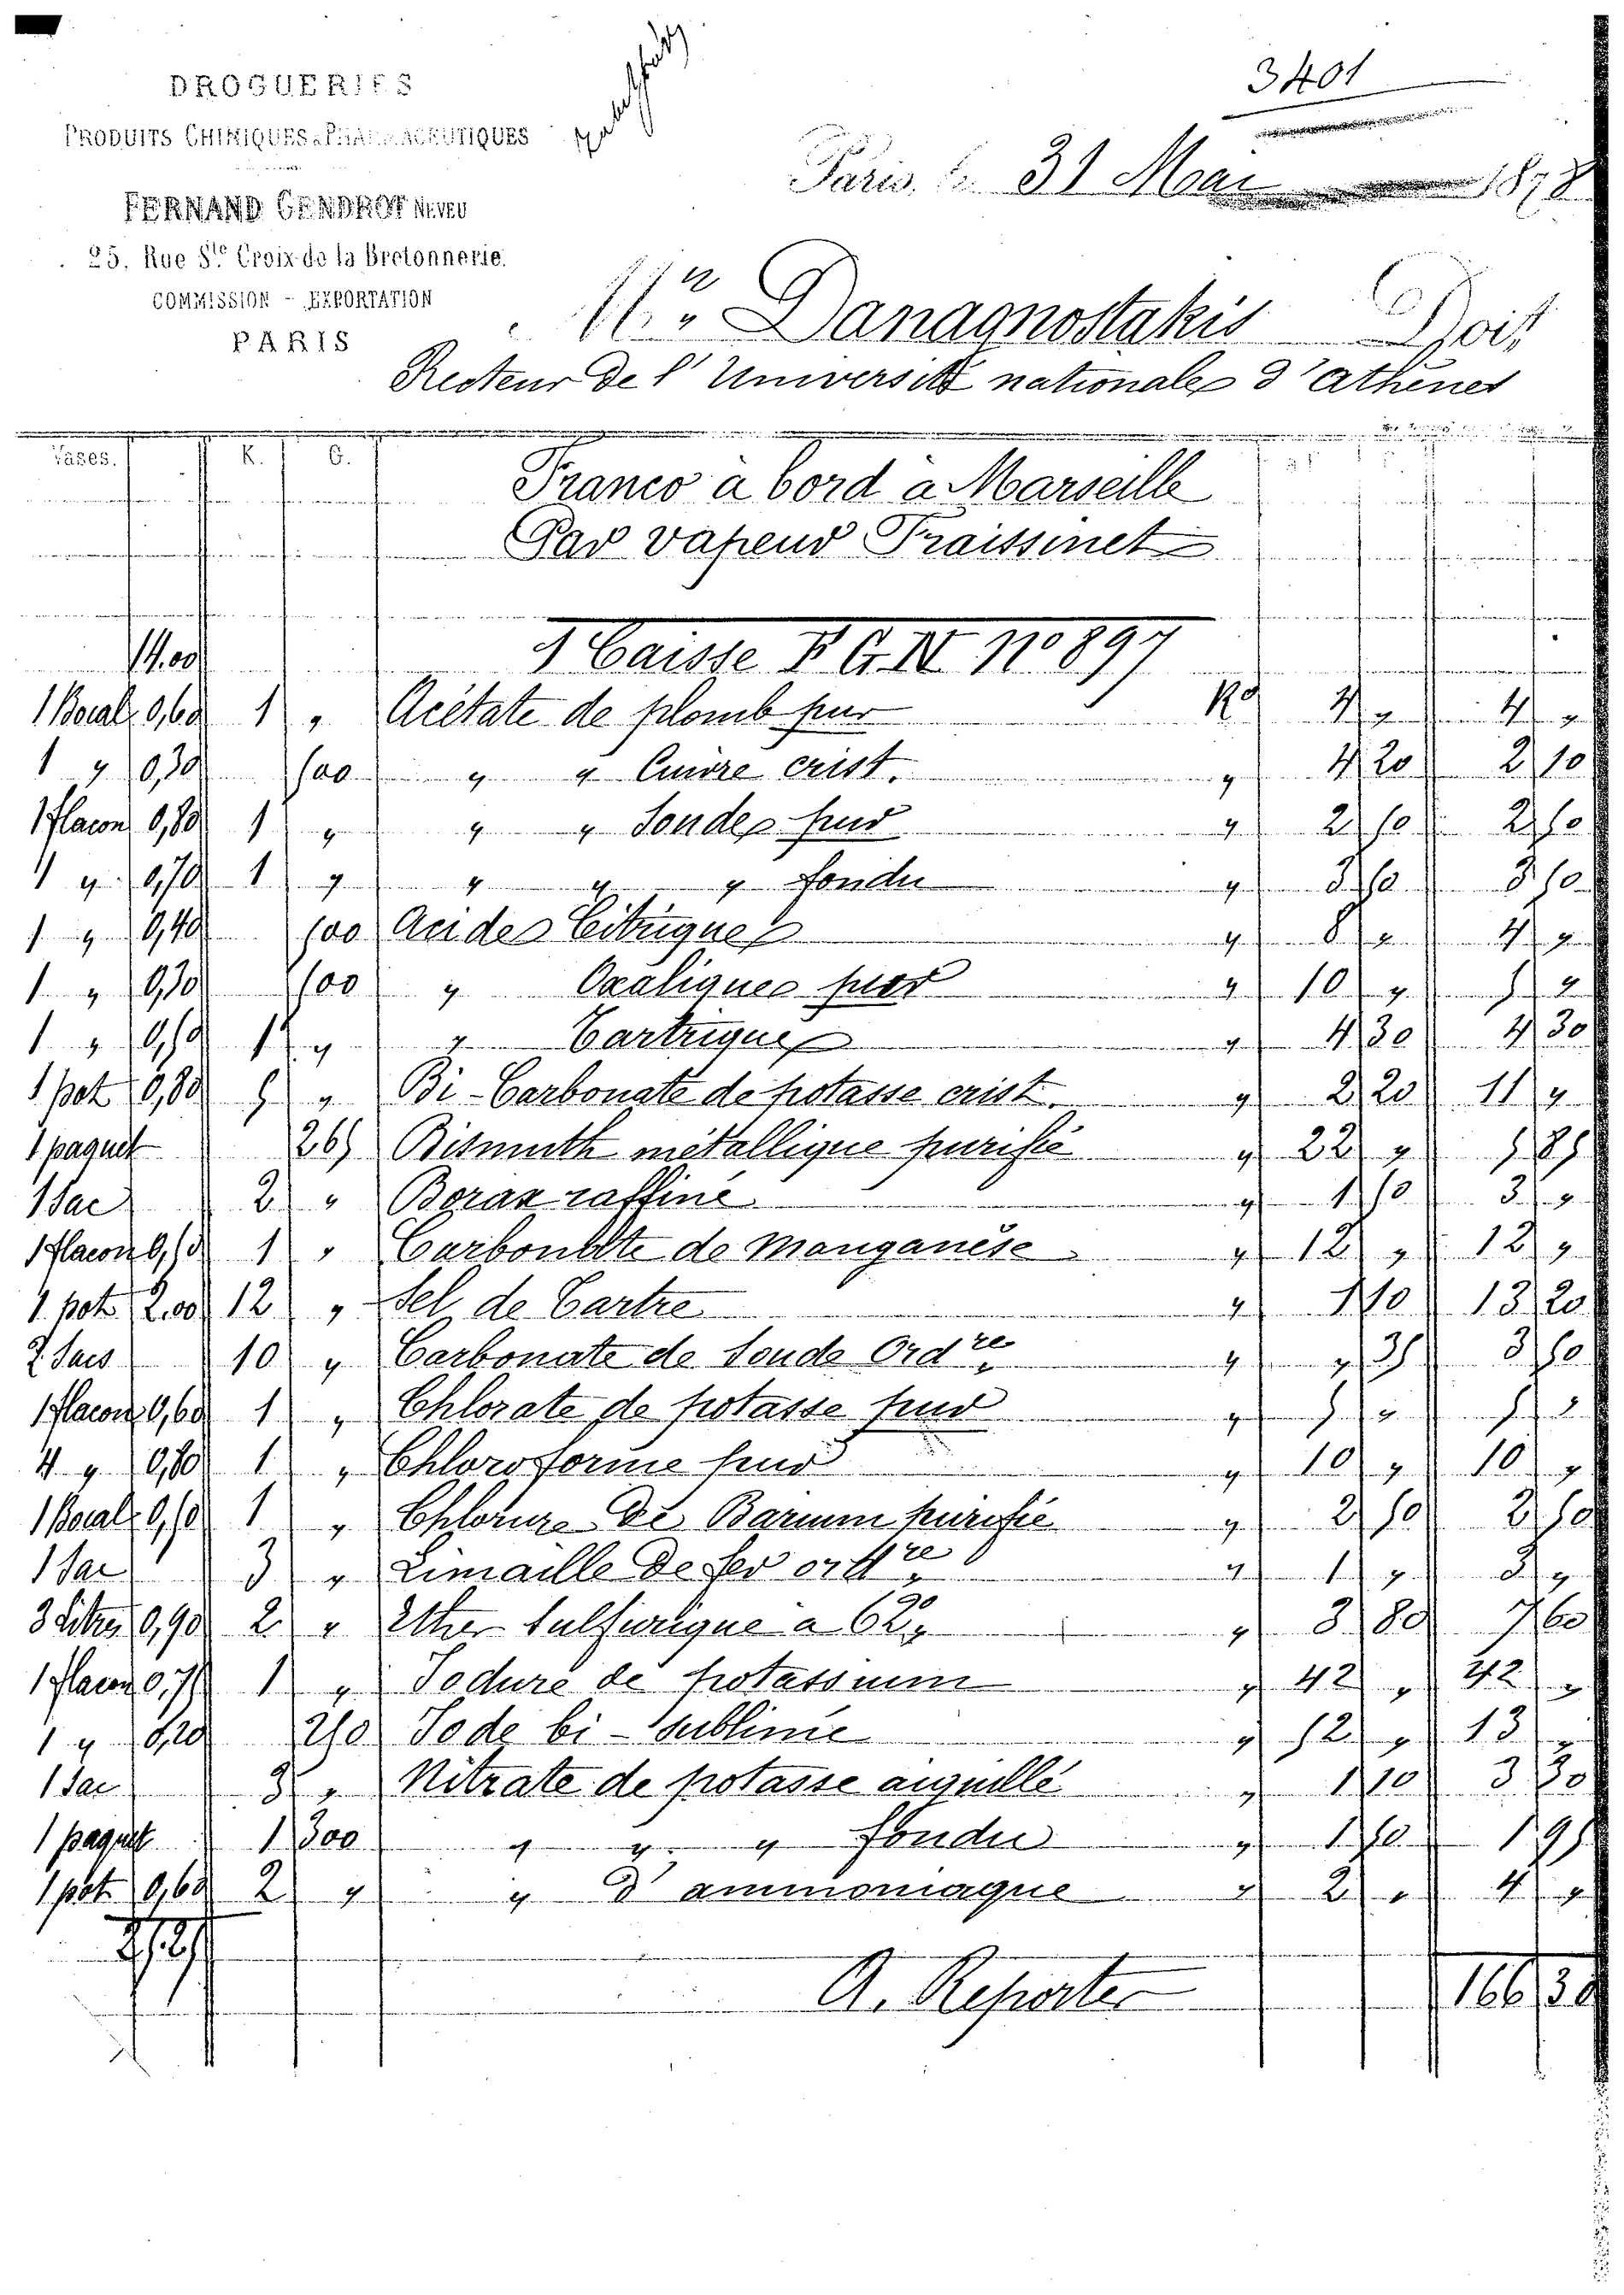 3401
DROGUERIES
PRODUITS CHIMIQUES & PHARMACEUTIQUES
FERNAND GENDROT NEVEU
25, Rue Ste Croix de la Bretonnerie.
COMMISSION - EXPORTATION
PARIS
Paris, le 31 Mai 1878
Mr Danagnostakis Doit
Recteur de l'Université nationale d'Athènes
Vases. K. G.
Franco à bord à Marseille
Par vapeur Fraissinet
14.00 1 Caisse F G N No 897
1 Bocal 0,60 1 " Acétate de plomb pur Ko 4 " 4 "
1 " 0,30 500 " " Cuivre crist. " 4 20 2 10
1 flacon 0,80 1 " " " Soude pur " 2 50 2 50
1 " 0,70 1 " " " " fondu " 3 50 3 50
1 " 0,40 500 Acide Citrique " 8 " 4 "
1 " 0,30 500 " Oxalique pur " 10 " 5 "
1 " 0,50 1 " " Tartrique " 4 30 4 30
1 pot 0,80 5 " Bi-Carbonate de potasse crist. " 2 20 11 "
1 paquet 265 Bismuth métallique purifié " 22 " 5 85
1 Sac 2 " Borax raffiné " 1 50 3 "
1 flacon 0,50 1 " Carbonate de Manganèse " 12 " 12 "
1 pot 2.00 12 " Sel de Tartre " 1 10 13 20
2 Sacs 10 " Carbonate de Soude Ordre " " 35 3 50
1 flacon 0,60 1 " Chlorate de potasse pur " 5 " 5 "
4 " 0,80 1 " Chloroforme pur " 10 " 10 "
1 Bocal 0,50 1 " Chlorure de Barium purifié " 2 50 2 50
1 Sac 3 " Limaille de fer ordre " 1 " 3 "
3 Litres 0,90 2 " Ether Sulfurique a 62° " 3 80 7 60
1 flacon 0,75 1 " Iodure de potassium " 42 " 42 "
1 " 0,20 250 Iode bi-sublimé " 52 " 13 "
1 Sac 3 " Nitrate de potasse aiguillé " 1 10 3 30
1 paquet 1 300 " " " fondu " 1 50 1 95
1 pot 0,60 2 " " d'ammoniaque " 2 " 4 "
25.25
A. Reporter 166 30